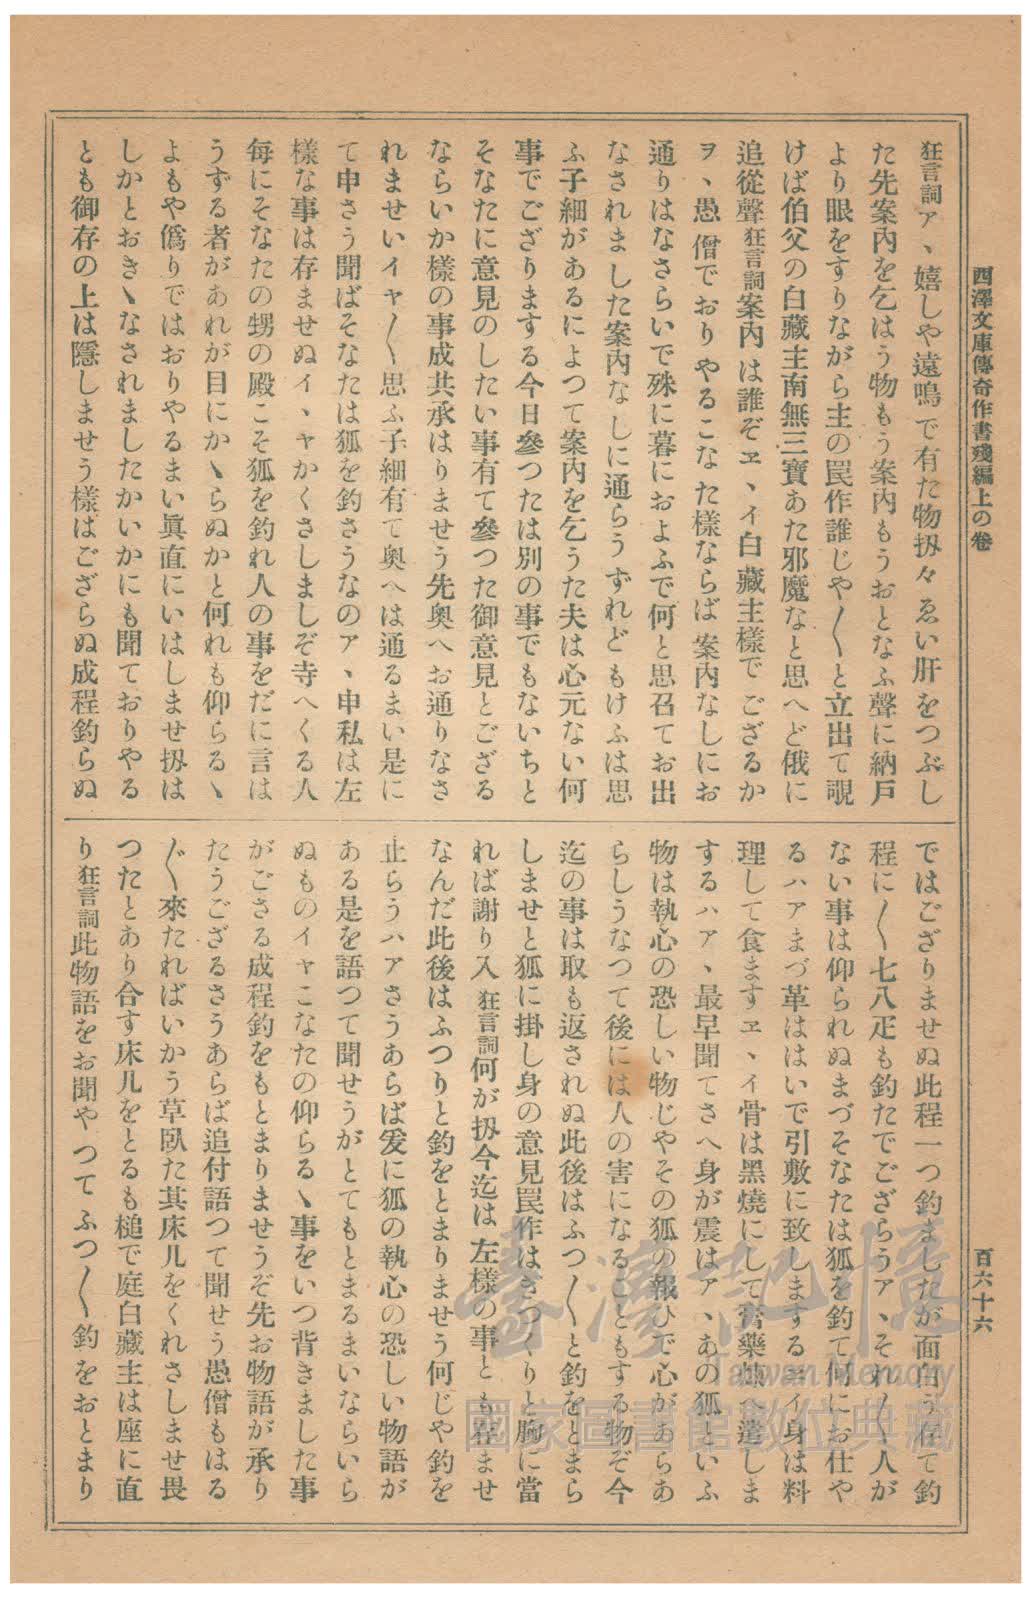 西澤文庫傳奇作書殘編上の卷
百六十六
狂言詞ア、嬉しや遠鳴で有た物扨々ゑい肝をつぶし
た先案內を乞はう物もう案內もうおとなふ聲に納戸
より眼をすりながら主の罠作誰じや〳〵と立出て覗
けば伯父の白藏主南無三寶あた邪魔なと思へど俄に
追從聲狂言詞案內は誰ぞヱ、イ白藏主樣でござるか
ヲ、愚僧でおりやるこなた樣ならば案內なしにお
通りはなさらいで殊に暮におよふで何と思召てお出
なされました案內なしに通らうずれどもけふは思
ふ子細があるによつて案內を乞うた夫は心元ない何
事でござりまする今日參つたは別の事でもないちと
そなたに意見のしたい事有て參つた御意見とござる
ならいか樣の事成共承はりませう先奥へお通りなさ
れませいイヤ〳〵思ふ子細有て奥へは通るまい是に
て申さう聞ばそなたは狐を釣さうなのア、申私は左
樣な事は存ませぬイ、ヤかくさしましぞ寺へくる人
每にそなたの甥の殿こそ狐を釣れ人の事をだに言は
うずる者があれが目にかゝらぬかと何れも仰らるゝ
よもや僞りではおりやるまい眞直にいはしませ扨は
しかとおきゝなされましたかいかにも聞ておりやる
とも御存の上は隱しませう樣はござらぬ成程釣らぬ
ではござりませぬ此程一つ釣ましたが面白う存て釣
程に〳〵七八疋も釣たでござらうア、それ〳〵人が
ない事は仰られぬまづそなたは狐を釣て何にお仕や
るハアまづ革ははいで引敷に致しまするヱイ身は料
理して食ますヱ、イ骨は黑燒にして膏藥煉へ遣しま
するハア、最早聞てさへ身が震はア、あの狐といふ
物は執心の恐しい物じやその狐の報ひで心があらあ
らしうなつて後には人の害になることもする物ぞ今
迄の事は取も返されぬ此後はふつ〳〵と釣をとまら
しませと狐に掛し身の意見罠作はきつくりと胸に當
れば謝り入狂言詞何が扨今迄は左樣の事とも存ませ
なんだ此後はふつりと釣をとまりませう何じや釣を
止らうハアさうあらば爰に狐の執心の恐しい物語が
ある是を語つて聞せうがとてもとまるまいならいら
ぬものイヤこなたの仰らるゝ事をいつ背きました事
がござる成程釣をもとまりませうぞ先お物語が承り
たうござるさうあらば追付語つて聞せう愚僧もはる
〴〵來たればいかう草臥た其床几をくれさしませ畏
つたとあり合す床几をとるも槌で庭白藏主は座に直
り狂言詞此物語をお聞やつてふつ〳〵釣をおとまり